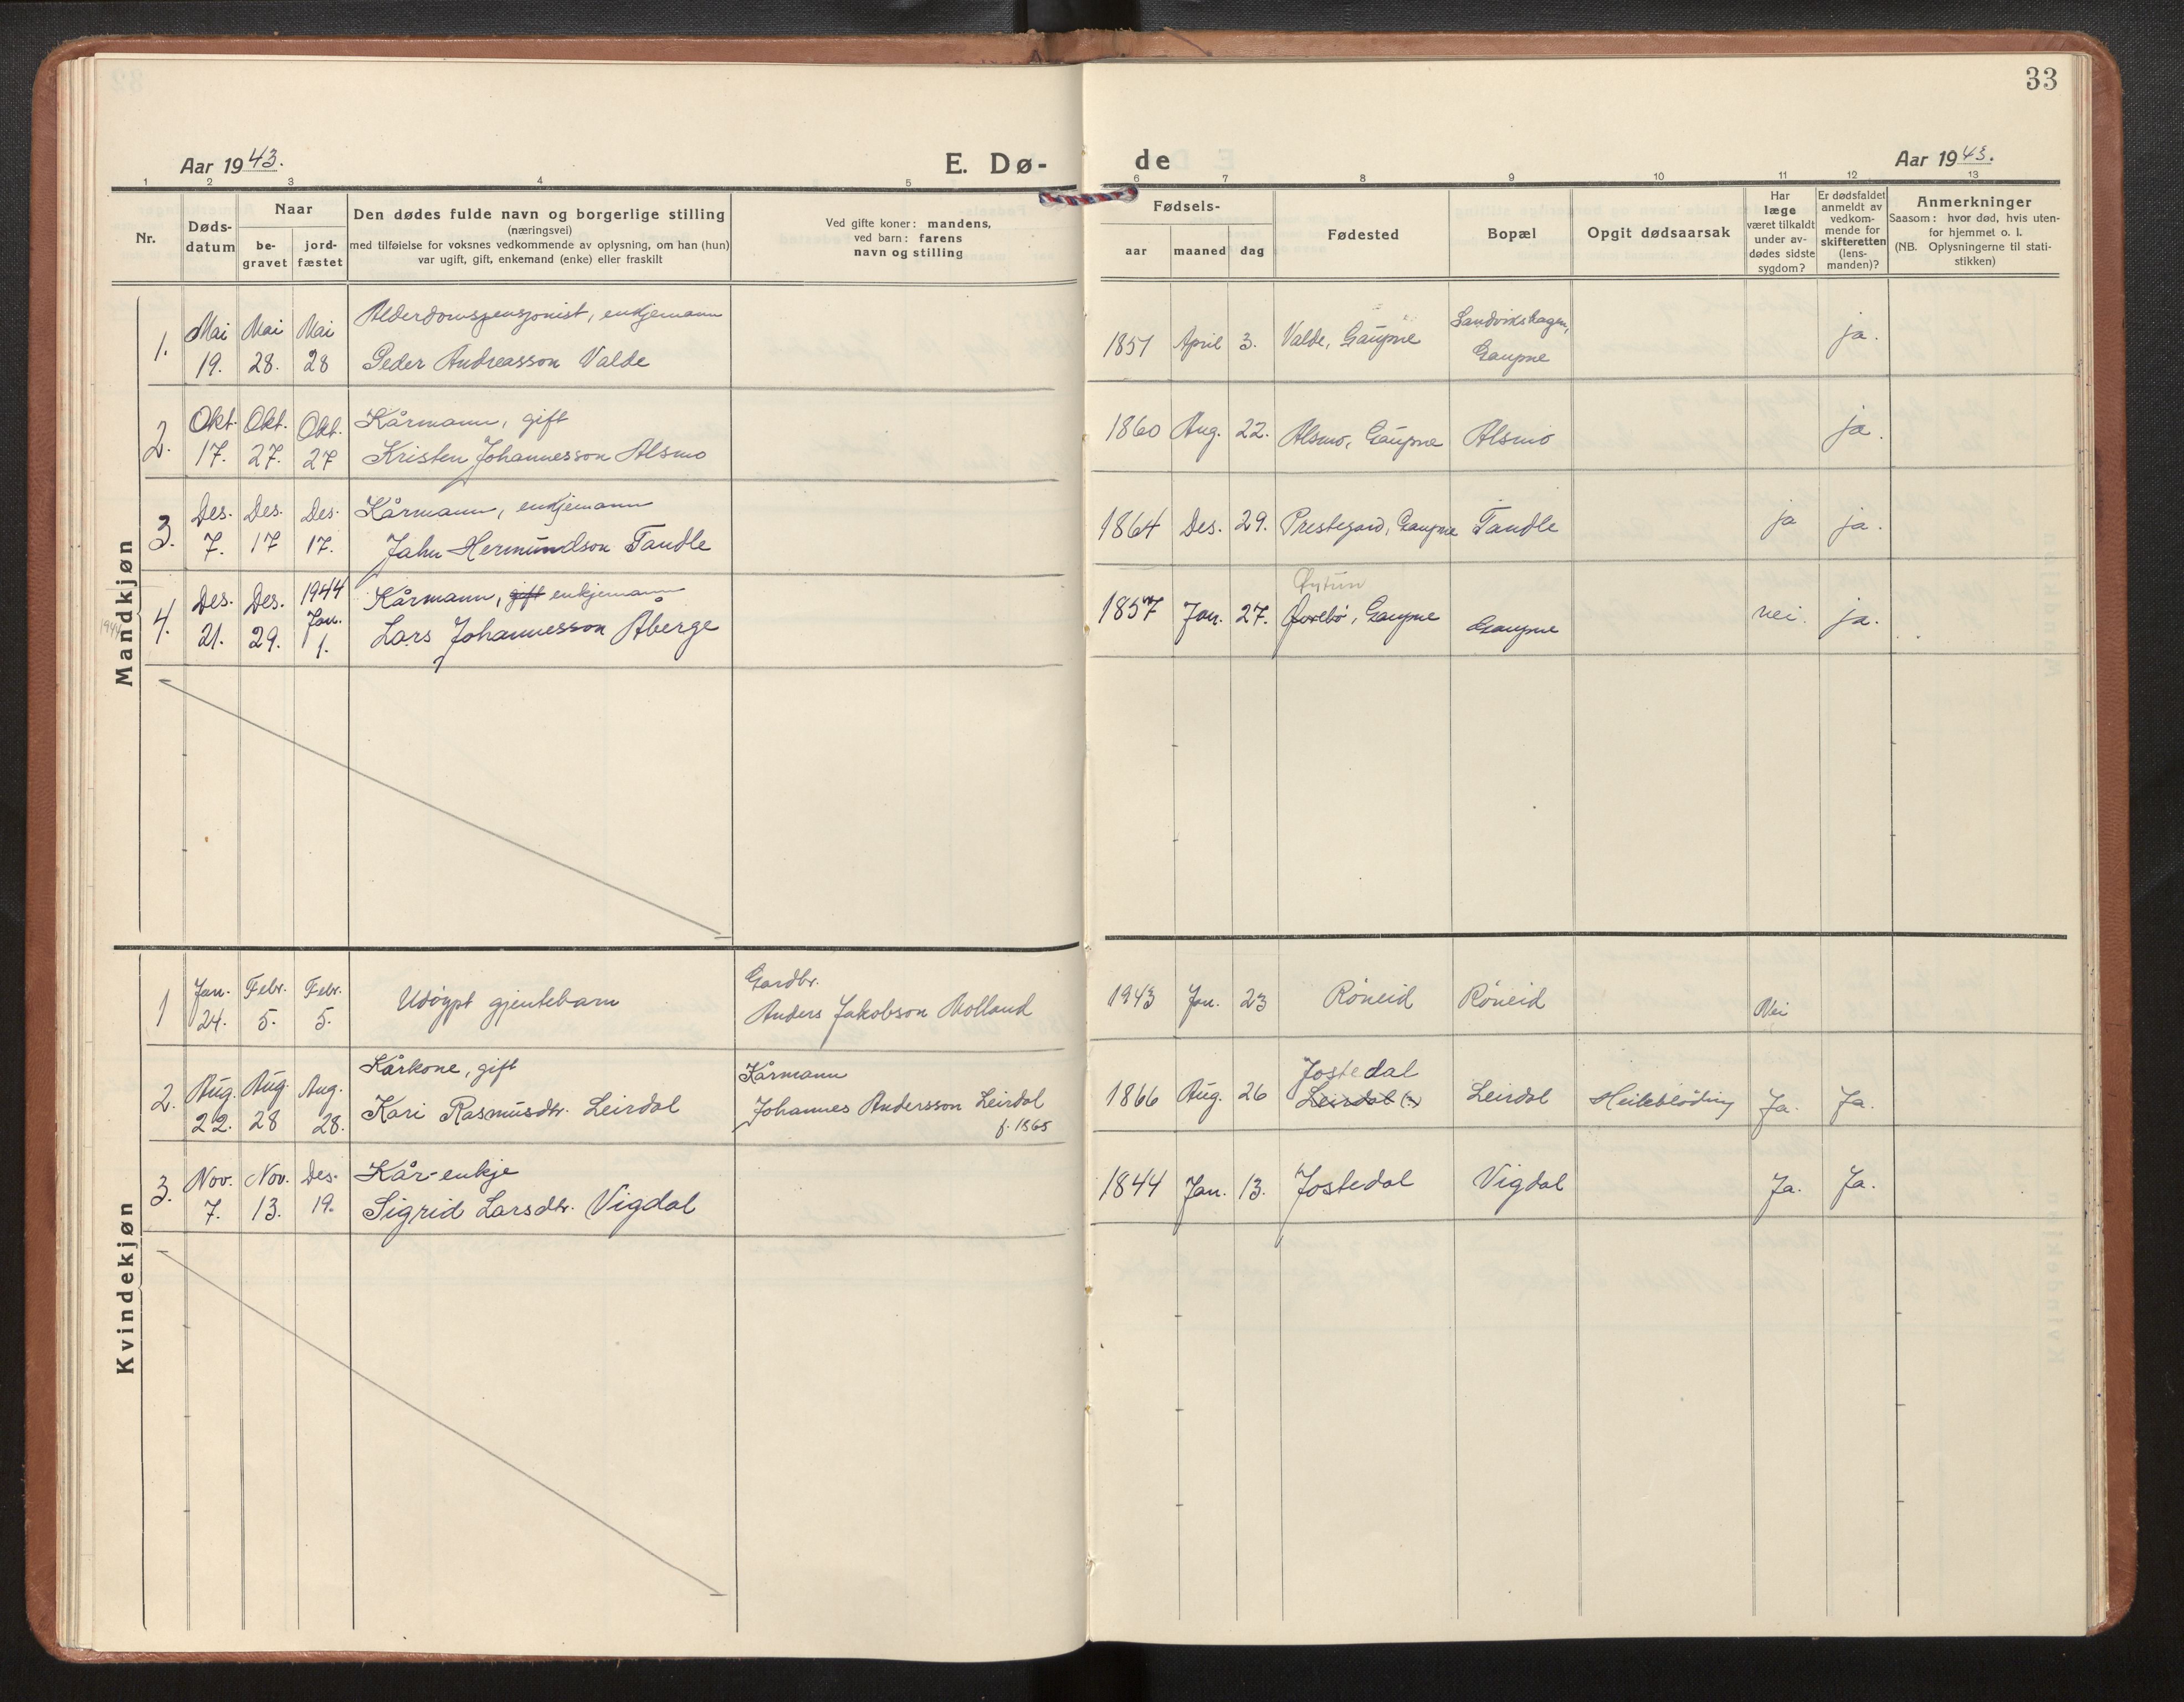 33
Aar 1943.
E. Dø-
de
Aar 1943.
1 2 3 4 5 6 7 8 9 10 11 12 13
Nr.
Døds-
datum
Naar
be-
gravet
jord-
fæstet
Den dødes fulde navn og borgerlige stilling
(næringsvei)
med tilføielse for voksnes vedkommende av oplysning, om han (hun)
var ugift, gift, enkemand (enke) eller fraskilt
Ved gifte koner: mandens,
ved barn: farens
navn og stilling
Fødsels-
aar maaned dag
Fødested
Bopæl
Opgit dødsaarsak
Har
læge
været tilkaldt
under av-
dødes sidste
sygdom?
Er dødsfaldet
anmeldt av
vedkom-
mende for
skifteretten
(lens-
manden)?
Anmerkninger
Saasom: hvor død, hvis uten-
for hjemmet o. l.
(NB. Oplysningerne til stati-
stikken)
Mandkjøn
1. Mai 19. Mai 28. Mai 28
Alderdomspensjonist, enkjemann
Peder Andreasson Valde
1851 April 3. Valde, Gaupne
Sandvikshagen,
Gaupne
ja.
2. Okt. 17. Okt. 27. Okt. 27
Kårmann, gift
Kristen Johannesson Alsmo
1860 Aug. 22. Alsmo, Gaupne Alsmo ja.
3. Des. 7. Des. 17 Des. 17.
Kårmann, enkjemann
Jahn Hermundson Tandle
1864 Des. 29. Prestegard, Gaupne Tandle ja ja.
1944
4. Des. 21. Des. 29. 1944 Jan. 1.
Kårmann, gift enkjemann
Lars Johannesson Åberge
1857 Jan. 27.
Øytun
Øvrebø, Gaupne Gaupne nei. ja.
Kvindekjøn
1 Jan. 24. Febr. 5. Febr. 5.
Udøypt gjentebarn
Gardbr.
Anders Jakobson Molland
1943 Jan. 23 Røneid Røneid Nei
2. Aug. 22. Aug. 28 Aug. 28.
Kårkone, gift
Kari Rasmusdtr. Leirdal
Kårmann
Johannes Andersson Leirdal
f. 1865
1866 Aug. 26
Jostedal
Leirdal (?) Leirdal Heilebløding Ja. Ja.
3. Nov. 7. Nov. 13. Des. 19.
Kår-enkje
Sigrid Larsdtr. Vigdal
1844 Jan. 13. Jostedal Vigdal Ja. Ja.